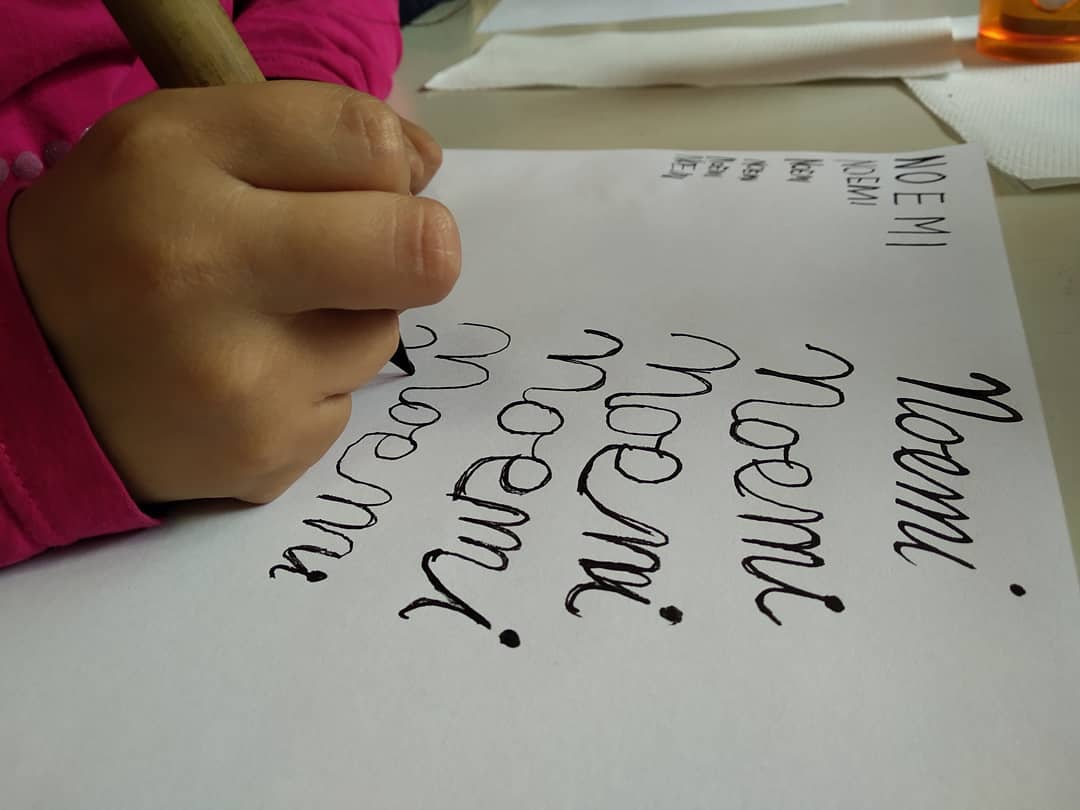 NOEMI
NOEMI
NOEMI
NOEMI
NOEMI
Noemi
Noemi
Noemi
Noemi
Noemi